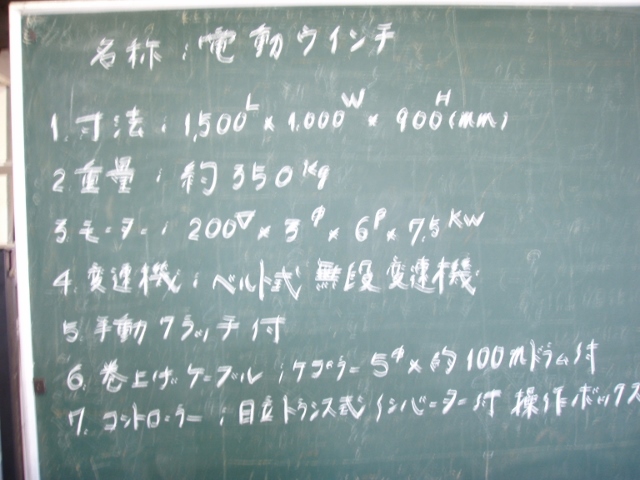 名称：電動ウインチ
1. 寸法：1,500L × 1,000W × 900H (mm)
2. 重量：約350kg
3. モーター：200V × 3φ × 6P × 7.5KW
4. 変速機：ベルト式 無段変速機
5. 手動クラッチ付
6. 巻上げケーブル：ケブラー5φ×約100mドラム付
7. コントローラー：日立トランス式インバーター付 操作ボックス